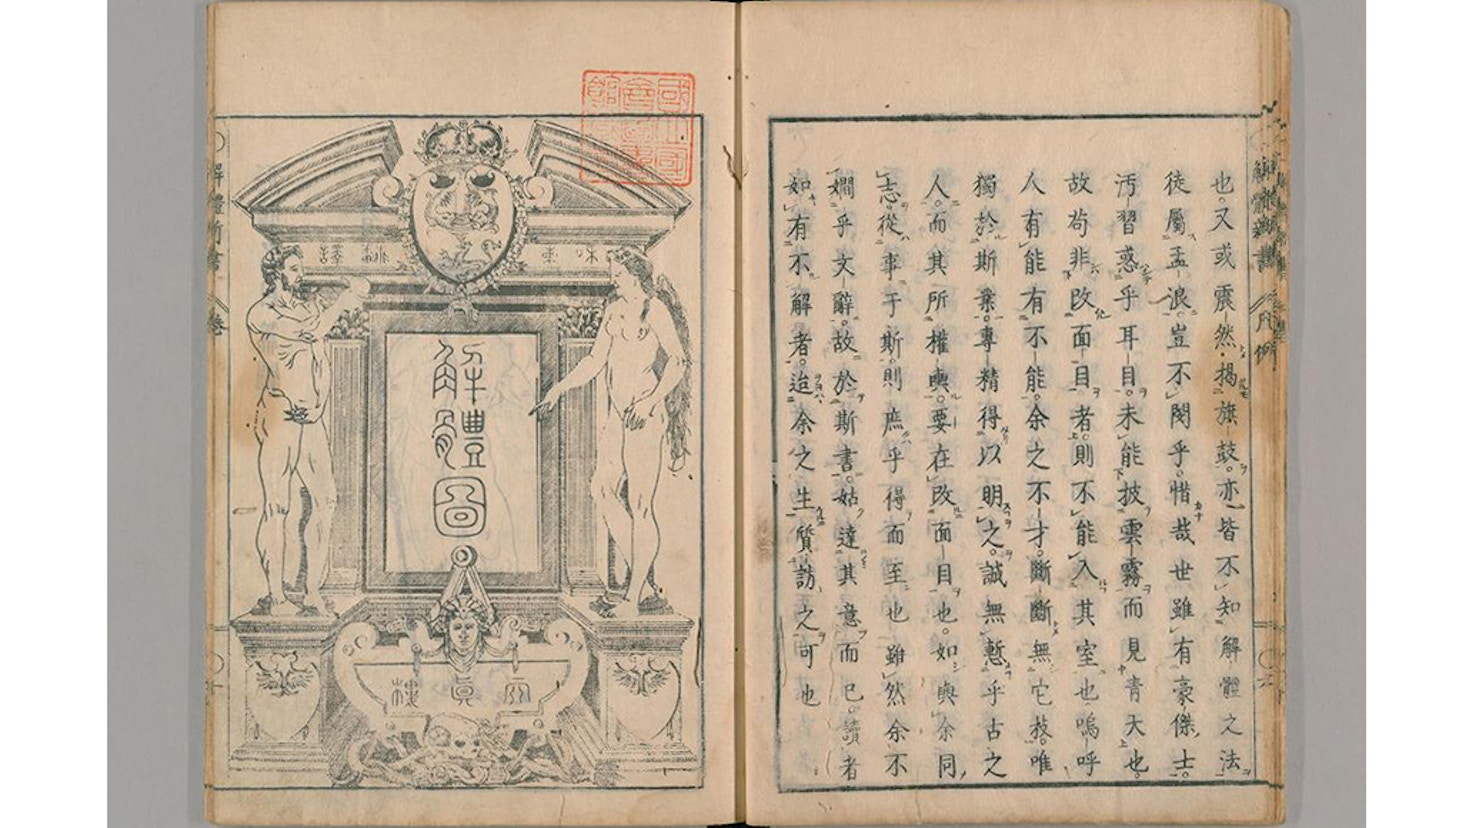 解體新書 凡例
也。又或震然揭旗鼓。亦皆不知解體之法
徒屬孟浪。豈不閔乎。惜哉世雖有豪傑士。
汚習惑乎耳目。未能披雲霧而見青天也。
故苟非改面目者。則不能入其室也嗚呼
人有能有不能。余之不才。斷斷無它技。唯
獨於斯業。專精得以明之。誠無慙乎古之
人。而其所權輿。要在改面目也。如與余同
志。從事于斯。則庶乎得而至也雖然余不
嫺乎文辭。故於斯書。姑達其意而已。讀者
如有不解者。迨余之生質訪之可也
解體圖
解體新書 卷